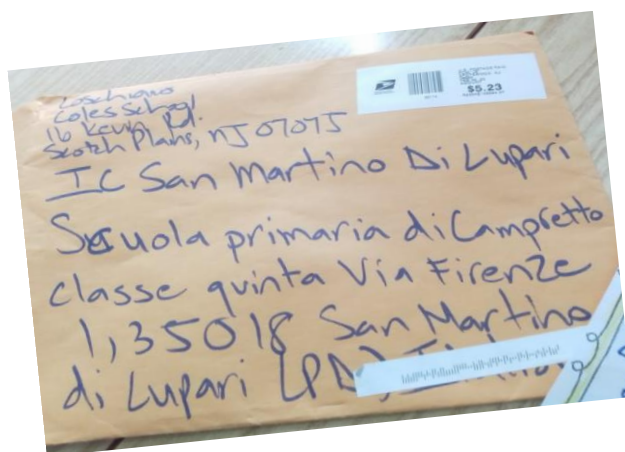 Loschiavo
Coles School
16 Kevin Rd.
Scotch Plains, NJ 07075
IC San Martino Di Lupari
Scuola primaria di Campretto
classe quinta Via Firenze
1, 35018 San Martino
di Lupari (PD),
$5.23